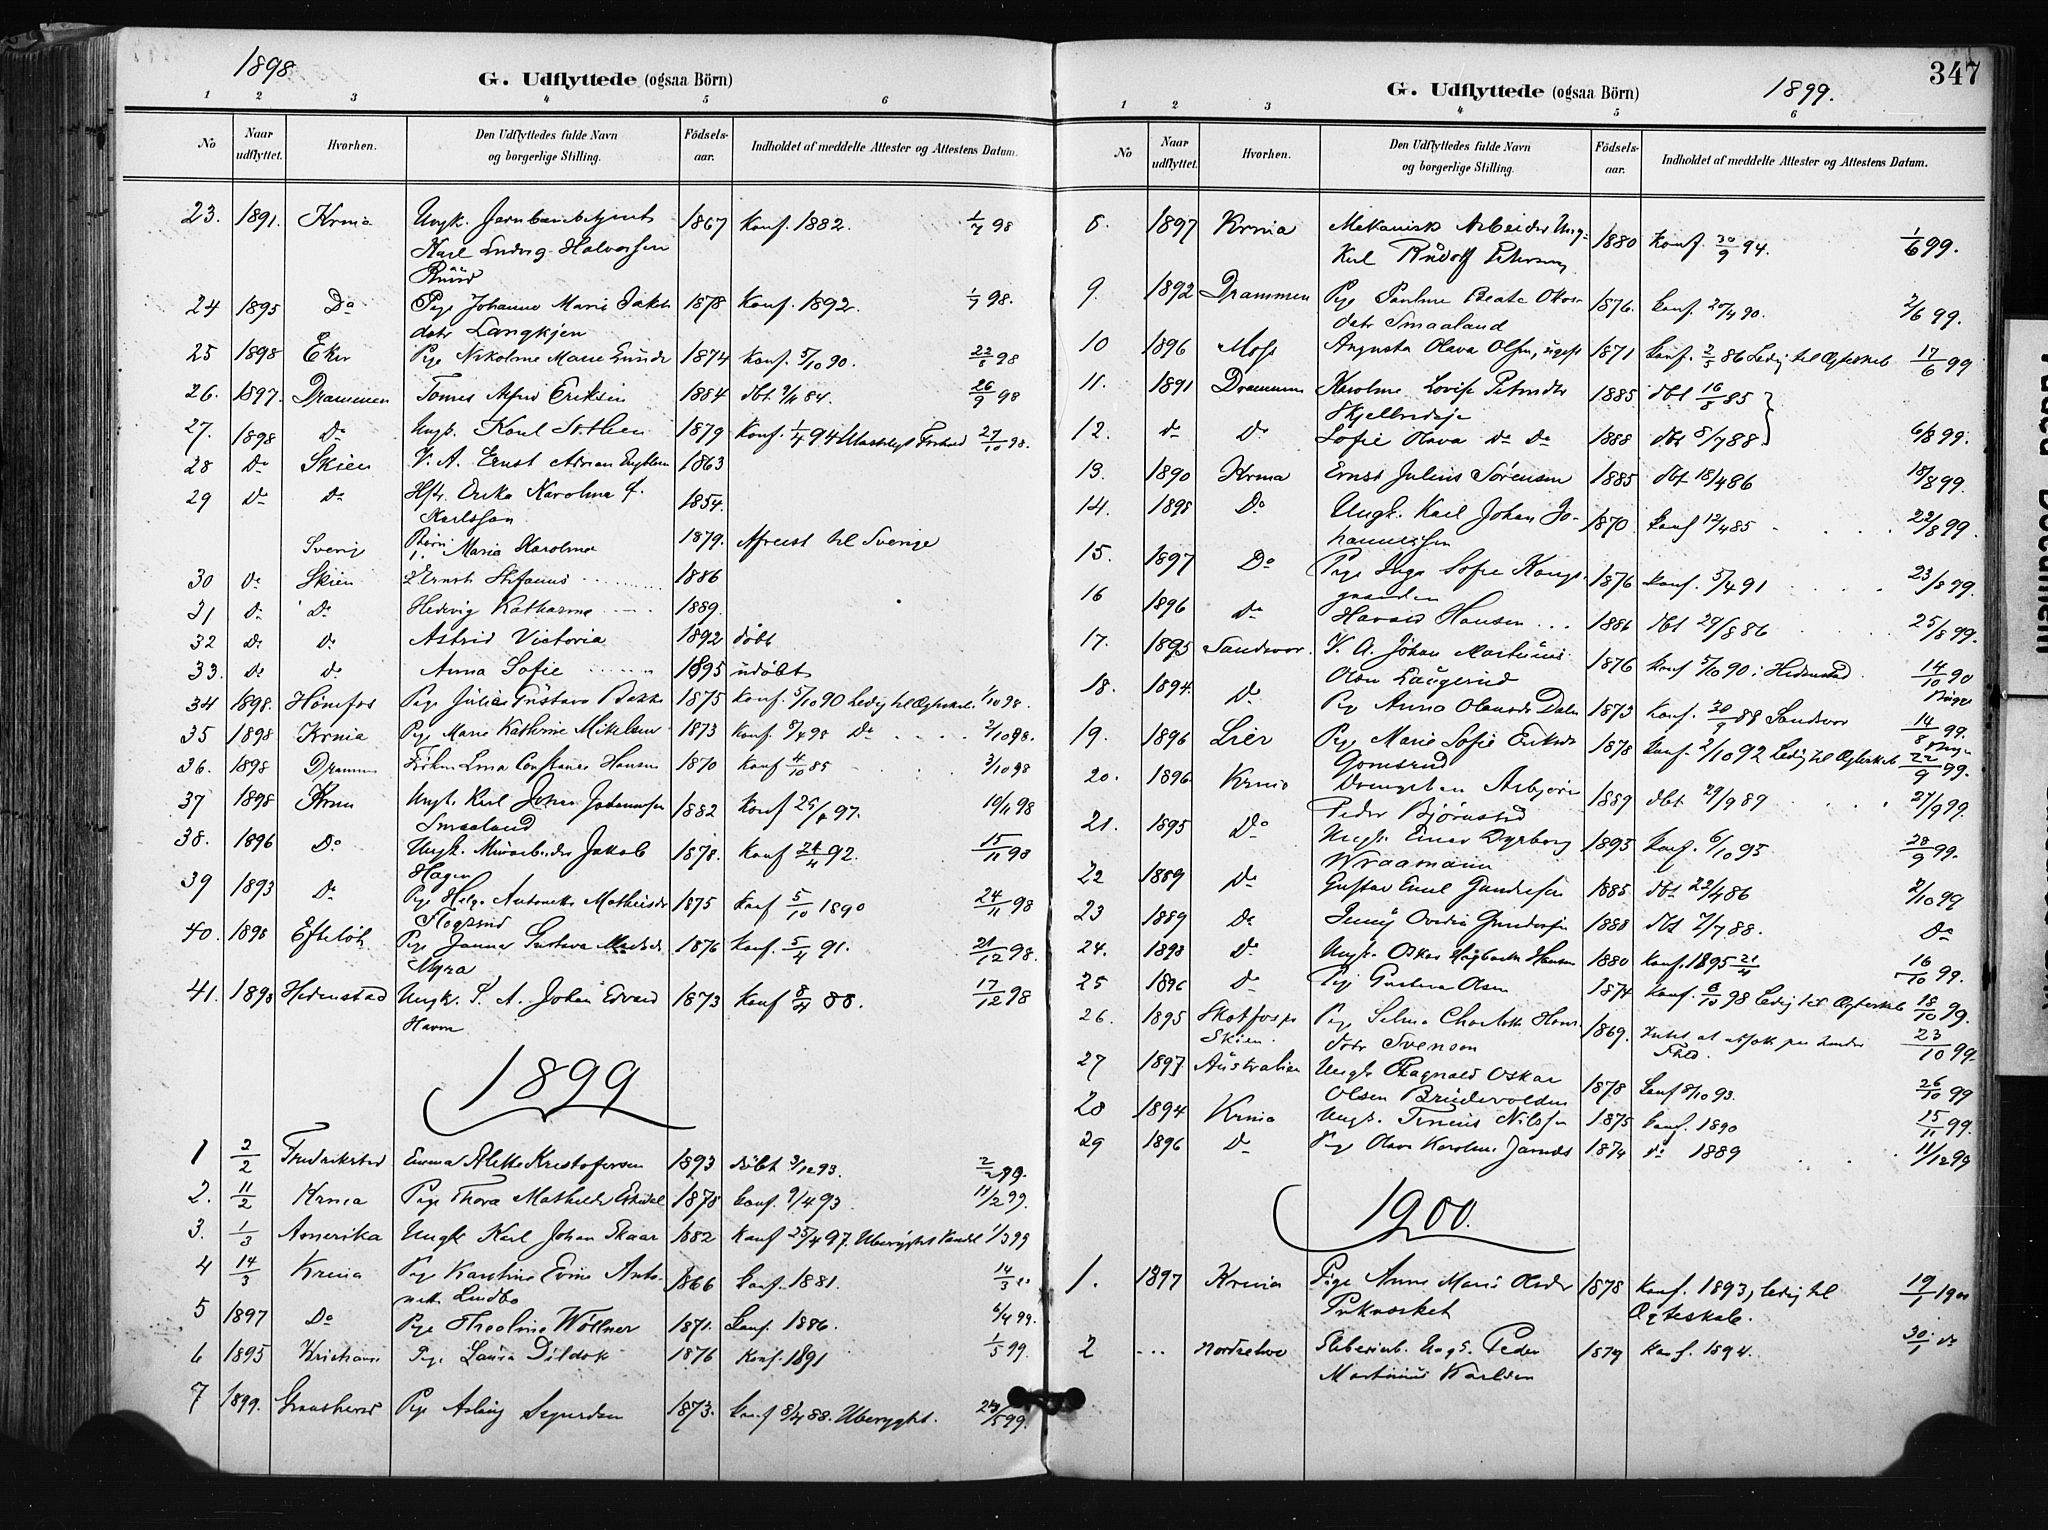 1898
G. Udflyttede (ogsaa Börn)
1 2 3 4 5 6
No Naar udflyttet. Hvorhen. Den Udflyttedes fulde Navn og borgerlige Stilling. Födsels-aar. Indholdet af meddelte Attester og Attestens Datum.
23. 1891. Krnia Ungk. 1867 Konf. 1882. 1/7 98
Karl Ludvig Halvorsen
Ruud
24 1895 Do Pige Johanne Marie 1878 Konf. 1892. 1/7 98.
datr Langkjen
25 1898 Eker Pige Nikoline Marie 1874 Konf. 5/10 90. 98
26. 1897. Drammen Tomas Alfred Eriksen 1884 dbt. 84. 26/9 98
27. 1898 Do Ungk. Karl 1879 Konf. 1/4 94 27/10 98.
28 Do Skien F. A. Ernst Adrian 1863
29 Do Do Hstr. Erika Karolina f. 1854.
Karlsson
Sverig Börn 1. Maria Karolina 1879. Afreist til Sverige
30 Do Skien Ernst Stefanus 1886
31 Do Do Hedvig Katharina 1889.
32 Do Do Astrid Victoria 1892 döbt
33. Do Do Anna Sofie 1895 udöbt
34 1898. Hönefos Pige Julie Gustava Bakke 1875 Konf. 5/10 90 Ledig til Ægteskab. 1/10 98.
35 1898 Krnia Pige Marie Kathrine Mikelsen 1873 Konf. Do 2/10 98.
36. 1898 Dramm Lina Constance Hansen 1870 Konf 4/10 85 3/10 98
37 1898 Krnia Ungk. Karl Johan Johannesen 1882 Konf 25/4 97. 10/11 98
Smaaland
38. 1896 Do Ungk. Jakob 1878. Konf 24/4 92. 15/11 98
Hagen
39 1893 Do Pige Helga Antonette Mathisdr 1875 Konf 5/10 1890 24/11 98
40. 1898 Efteløt Pige Gustava 1876 Konf. 5/4 91. 21/12 98.
Myra
41. 1898 Hedenstad Ungk. S. A. Johan Edvard 1873 Konf 8/4 88. 17/12 98
Havn
1899
1 2/2 Fredrikstad Emma Alette Kristofersen 1893 döbt 3/12 93. 2/2 99.
2. 11/2 Krnia Pige Thora Mathilde 1878 Konf. 9/4 93. 11/2 99.
3. 1/3 Amerika Ungk Karl Johan Skaar 1882 Konf 25/4 97. Uberygtet Vandel 1/3 99
4 14/3 Krnia Pige Karoline Evine Anto- 1866 Konf. 1881. 14/3 "
nette Lindbo
5 1897 Do Pige Theoline Wöllner 1871. Konf. 1886. 6/4 99.
6 1895 Kristiania Pige Laura Dildok 1876 Konf. 1891 1/5 99.
7 1899. Gransherad Pige Aslaug Sigurdsen 1873. Konf 8/4 88. Uberygtet. 99.
347
G. Udflyttede (ogsaa Börn)
1899.
1 2 3 4 5 6
No Naar udflyttet. Hvorhen. Den Udflyttedes fulde Navn og borgerlige Stilling. Födsels-aar. Indholdet af meddelte Attester og Attestens Datum.
8. 1897 Krnia Mekanisk Arbeider Ung- 1880 Konf. 30/9 94. 1/6 99.
Karl Rudolf Petersen
9. 1892 Drammen Pige Pauline Beate 1876. Konf. 20/4 90. 2/6 99.
datr Smaaland
10 1896 Moss Augusta Olava Olsen, ugift 1871 Konf. 2/5 86 Ledig til Ægteskab 17/6 99
11. 1891 Drammen Karoline Lovise 1885 dbt 16/8 85
Skjelbredeje
12. do Do Sofie Olava do Do 1888 dbt 8/7 88 6/8 99.
13. 1890 Krnia Ernst Julius Sörensen 1885 dbt 18/4 86 18/8 99.
14. 1898 Do Ungk. Karl Johan Jo- 1870 Konf 12/4 85 22/8 99.
hannessen
15. 1897 Do Pige Inga Sofie Kongs- 1876 Konf. 5/4 91 23/8 99.
gaarden
16 1896 Do Harald Hansen 1886 dbt 29/8 86 25/8 99.
17. 1895 Sandsvær. F. A. Johan Martinius 1876 Konf 5/10 90 i Hedenstad. 14/10 90
Olsen Laugerud
18. 1894. Do Pige Anna Olausdr Dalen 1873 Konf. 30/9 88 Sandsvær 14/8 99.
19. 1896 Lier Pige Marie Sofie Eriksdr 1878 Konf. 2/10 92 Ledig til Ægteskab 22/9 99.
Gomsrud
20. 1896 Krnia Drengebarn Asbjörn 1889 dbt 29/9 89 27/9 99.
Peder Björnstad
21. 1895 Do Ungk. Einar Dyrborg 1893 Konf. 6/10 95 28/9 99.
Wraamann
22 1889 Do Gustav Emil Gundersen 1885 dbt 22/4 86 2/10 99
23 1889 Do Jenny Ovedia Gundersen 1888 dbt 7/7 88. Do
24. 1898 Do Ungk. Oskar Hansen 1880 Konf. 1895 21/4 16/10 99.
25 1896 Do Pige Gustava Olsen 1874 Konf. 98 Ledig til Ægteskab 18/10 99.
26. 1895 Skotfoss pr Pige Selma Charlotte Hans- 1869. Intet at udsætte paa hendes 23/10 99.
Skien. datr Svenson Fhd.
27 1897 Australien Ungk Ragnald Oskar 1878 Konf 8/10 93. 26/10 99
Olsen Brudevolden
28 1894 Krnia Ungk. Nilsen 1875 Konf. 1890 15/11 99.
29 1896 Do Pige Olava Karoline 1874 do 1889 11/12 99
1900.
1. 1897 Krnia Pige Anne Marie Olsdr 1878 Konf. 1893, ledig til 19/1 1900
Pukværket Ægteskab.
2 ... Nordrehov Ungk. Peder 1879 Konf. 1894. 30/1 do
Martinius Karlsen